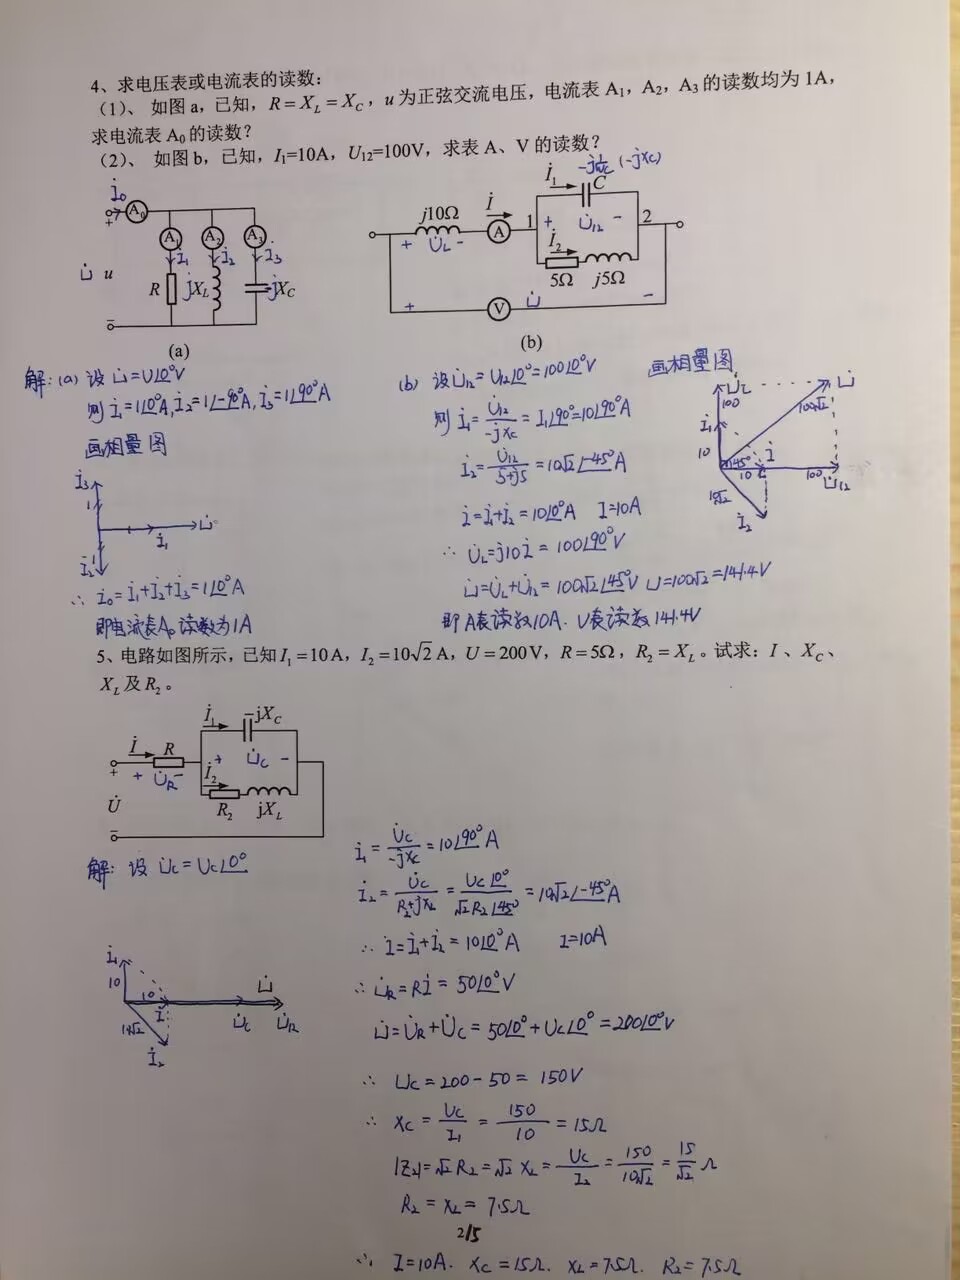 4、求电压表或电流表的读数：
（1）、 如图 a，已知，R = X_L = X_C，u 为正弦交流电压，电流表 A₁，A₂，A₃ 的读数均为 1A，
求电流表 A₀ 的读数？
（2）、 如图 b，已知，I₁=10A，U₁₂=100V，求表 A、V 的读数？
İ₀
+
A₀
A₁
A₂
A₃
İ₁
İ₂
İ₃
U̇
u
R
jX_L
-jX_C
−
(a)
-j1/ωC (-jX_C)
İ₁
C
j10Ω
İ
A
1
+ U̇₁₂ −
2
+ U̇_L −
İ₂
5Ω
j5Ω
+
V
U̇
−
(b)
解：(a) 设 U̇=U∠0°V
则 İ₁=1∠0°A, İ₂=1∠-90°A, İ₃=1∠90°A
画相量图
İ₃
1
U̇
İ₁
1
İ₂
∴ İ₀=İ₁+İ₂+İ₃=1∠0°A
即电流表A₀读数为1A
(b) 设U̇₁₂=U₁₂∠0°=100∠0°V
则 İ₁=U̇₁₂/-jX_C=I₁∠90°=10∠90°A
İ₂=U̇₁₂/5+j5=10√2∠-45°A
İ=İ₁+İ₂=10∠0°A I=10A
∴ U̇_L=j10İ=100∠90°V
U̇=U̇_L+U̇₁₂=100√2∠45°V U=100√2=141.4V
即A表读数10A. V表读数141.4V
画相量图
U̇_L
100
U̇
100√2
İ₁
10
45°
İ
10
100
U̇₁₂
10√2
İ₂
5、电路如图所示，已知 I₁ =10A，I₂ =10√2 A，U = 200V，R = 5Ω，R₂ = X_L 。试求：I 、X_C、
X_L 及 R₂ 。
İ₁
-jX_C
İ
R
+
+ U̇_R −
+ U̇_C −
İ₂
U̇
R₂
jX_L
−
解：设 U̇_C=U_C∠0°
İ₁
10
10
İ
U̇
U̇_C
U̇_R
10√2
İ₂
İ₁=U̇_C/-jX_C=10∠90°A
İ₂=U̇_C/R₂+jX_L=U_C∠0°/√2R₂∠45°=10√2∠-45°A
∴ İ=İ₁+İ₂=10∠0°A I=10A
∴ U̇_R=Rİ=50∠0°V
U̇=U̇_R+U̇_C=50∠0°+U_C∠0°=200∠0°V
∴ U_C=200-50=150V
∴ X_C=U_C/I₁=150/10=15Ω
|Z₂|=√2R₂=√2X_L=U_C/I₂=150/10√2=15/√2Ω
R₂=X_L=7.5Ω
2/5
∴ I=10A. X_C=15Ω. X_L=7.5Ω. R₂=7.5Ω